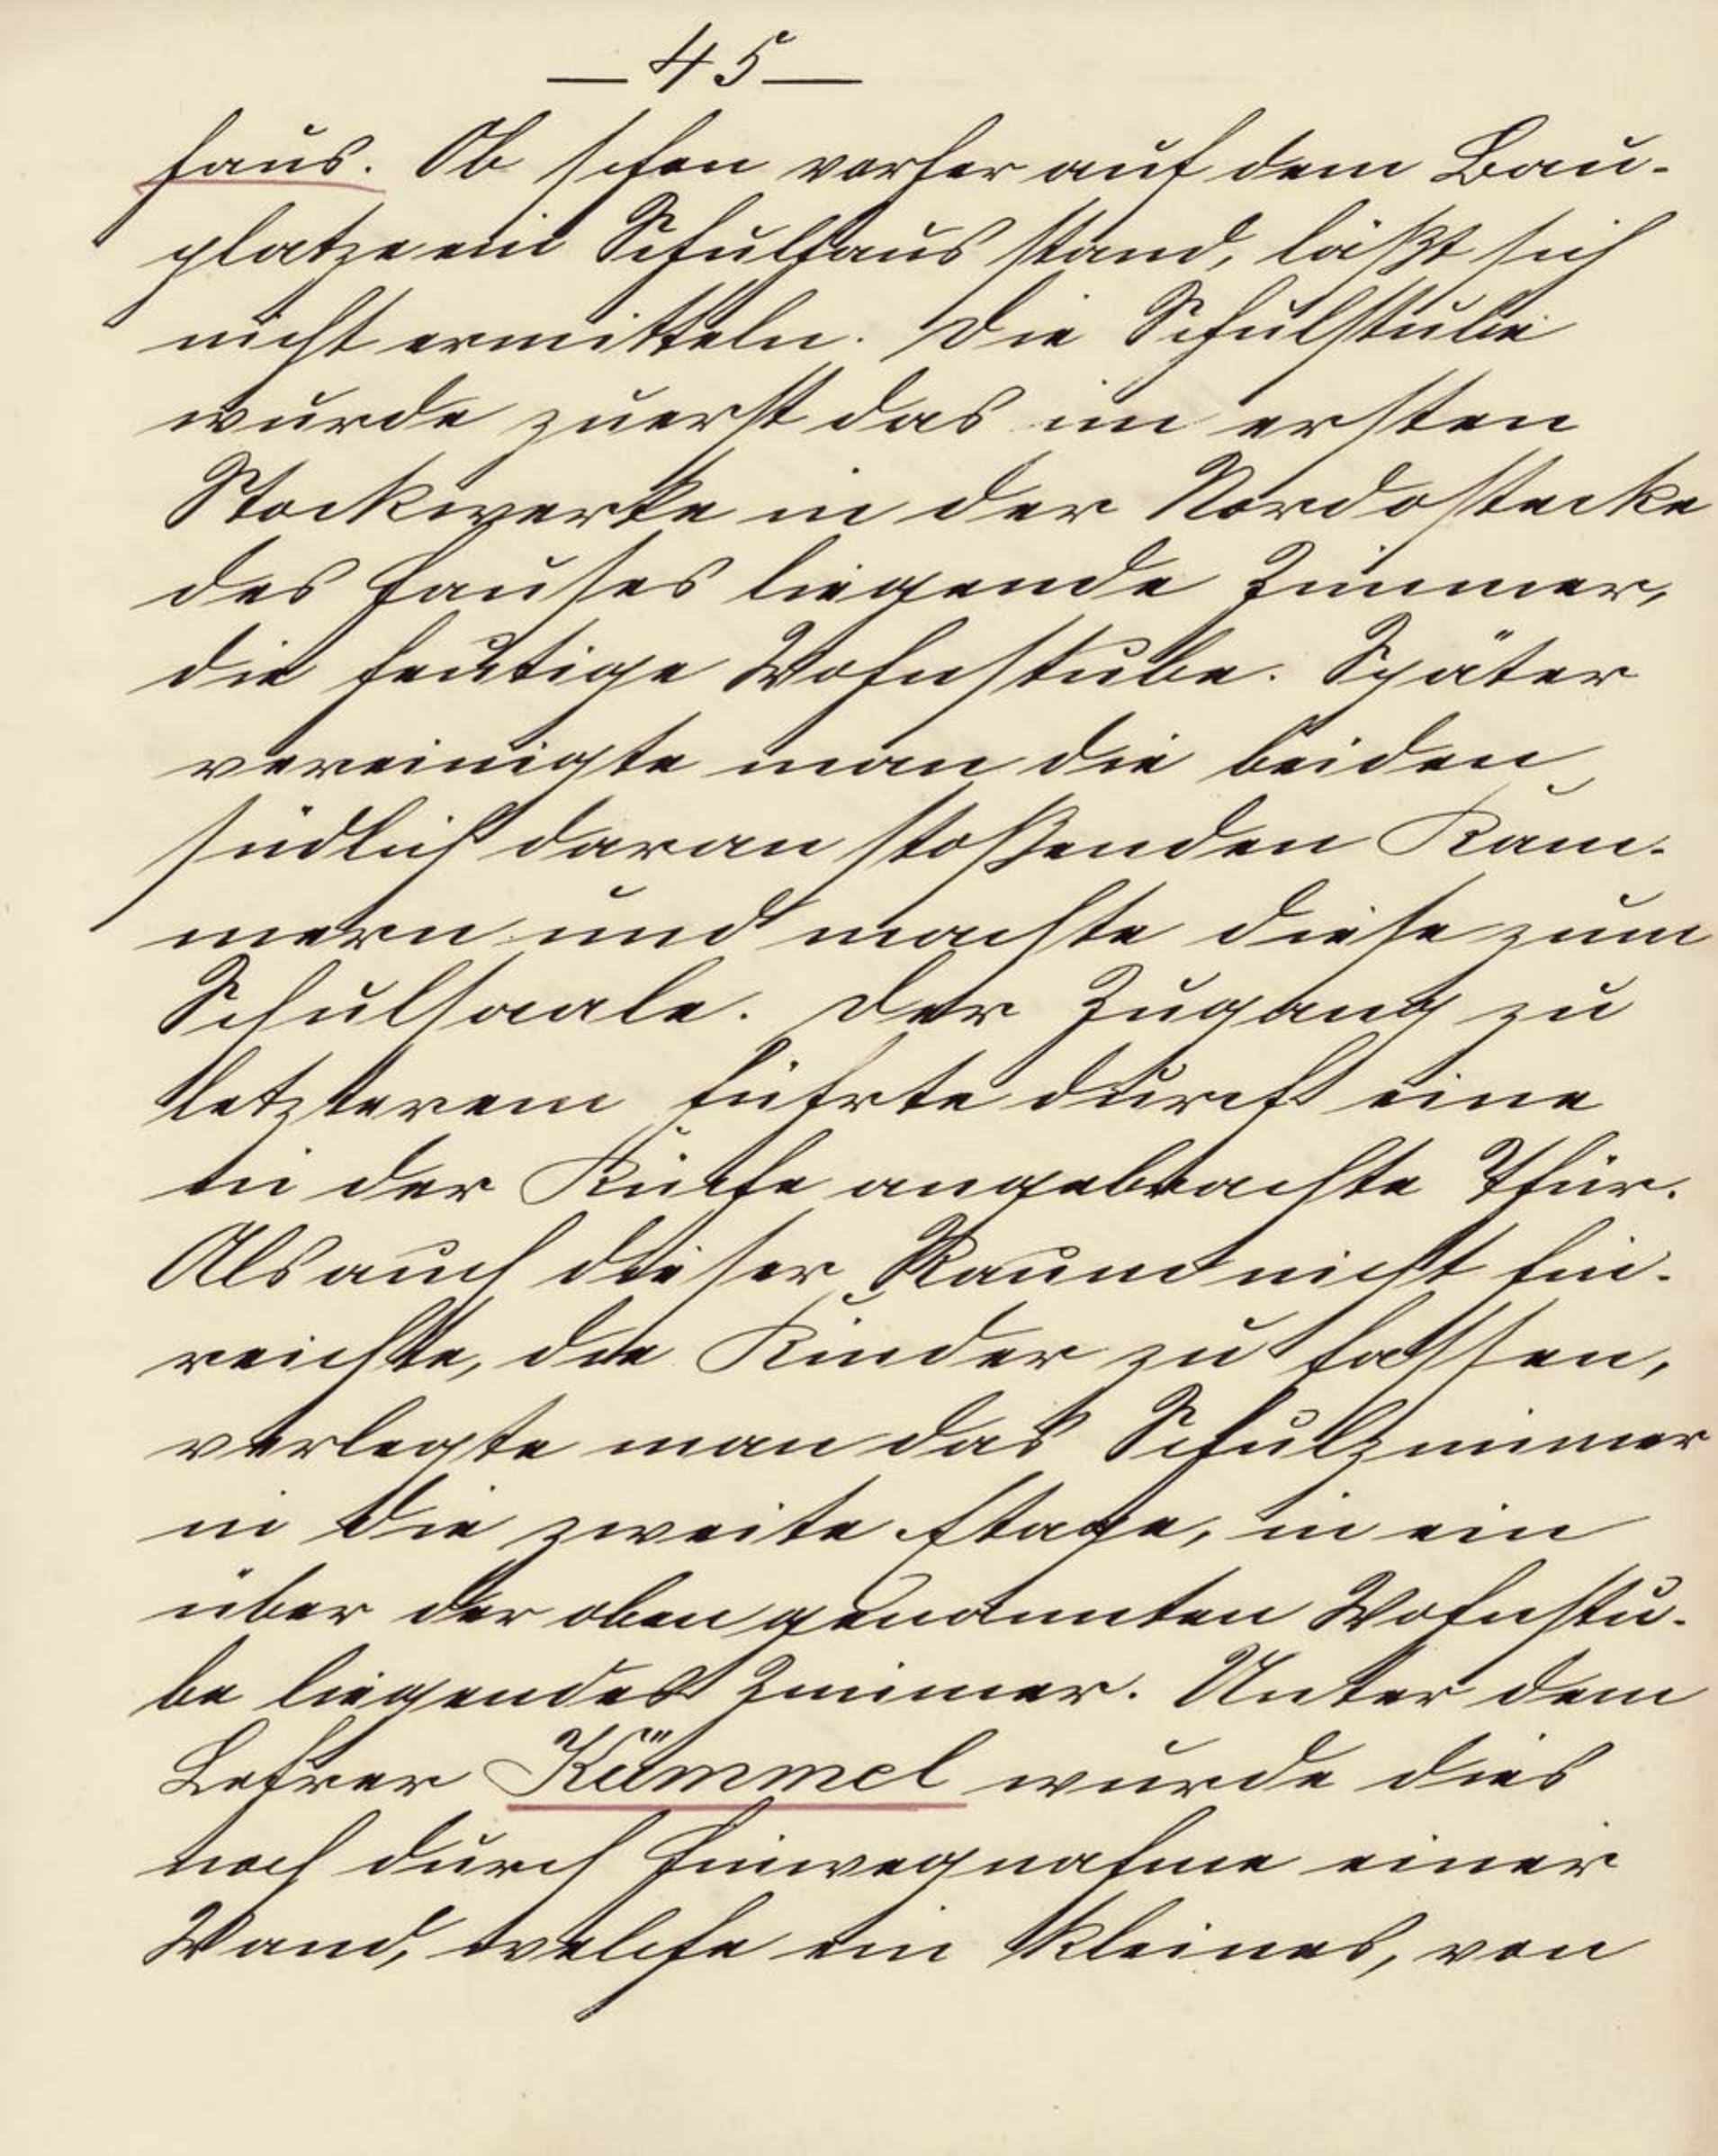 — 45 —
haus. Ob schon vorher auf dem Bau-
platze ein Schulhaus stand, läßt sich
nicht ermitteln. Die Schulstube
wurde zuerst das im ersten
Stockwerke in der Nordostecke
des Hauses liegende Zimmer,
die heutige Wohnstube. Später
vereinigte man die beiden
südlich daran stoßenden Kam-
mern und machte diese zum
Schulsaale. Der Zugang zu
letzterem führte durch eine
in der Küche angebrachte Thür.
Als auch dieser Raum nicht hin-
reichte, die Kinder zu fassen,
verlegte man das Schulzimmer
in die zweite Etage, in ein
über der oben genannten Wohnstu-
be liegendes Zimmer. Unter dem
Lehrer Kümmel wurde dies
noch durch Hinwegnahme einer
Wand, welche ein kleines, von